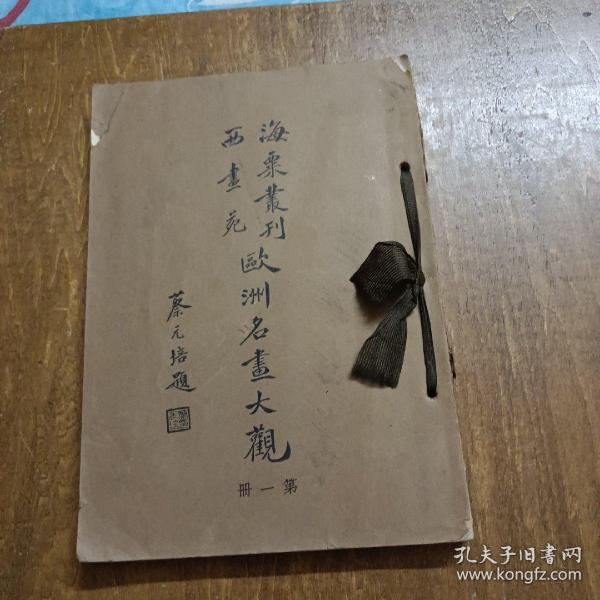 海粟叢刊
西畫苑
歐洲名畫大觀
第一冊
蔡元培題
孔夫子旧書网
www.kongfz.com